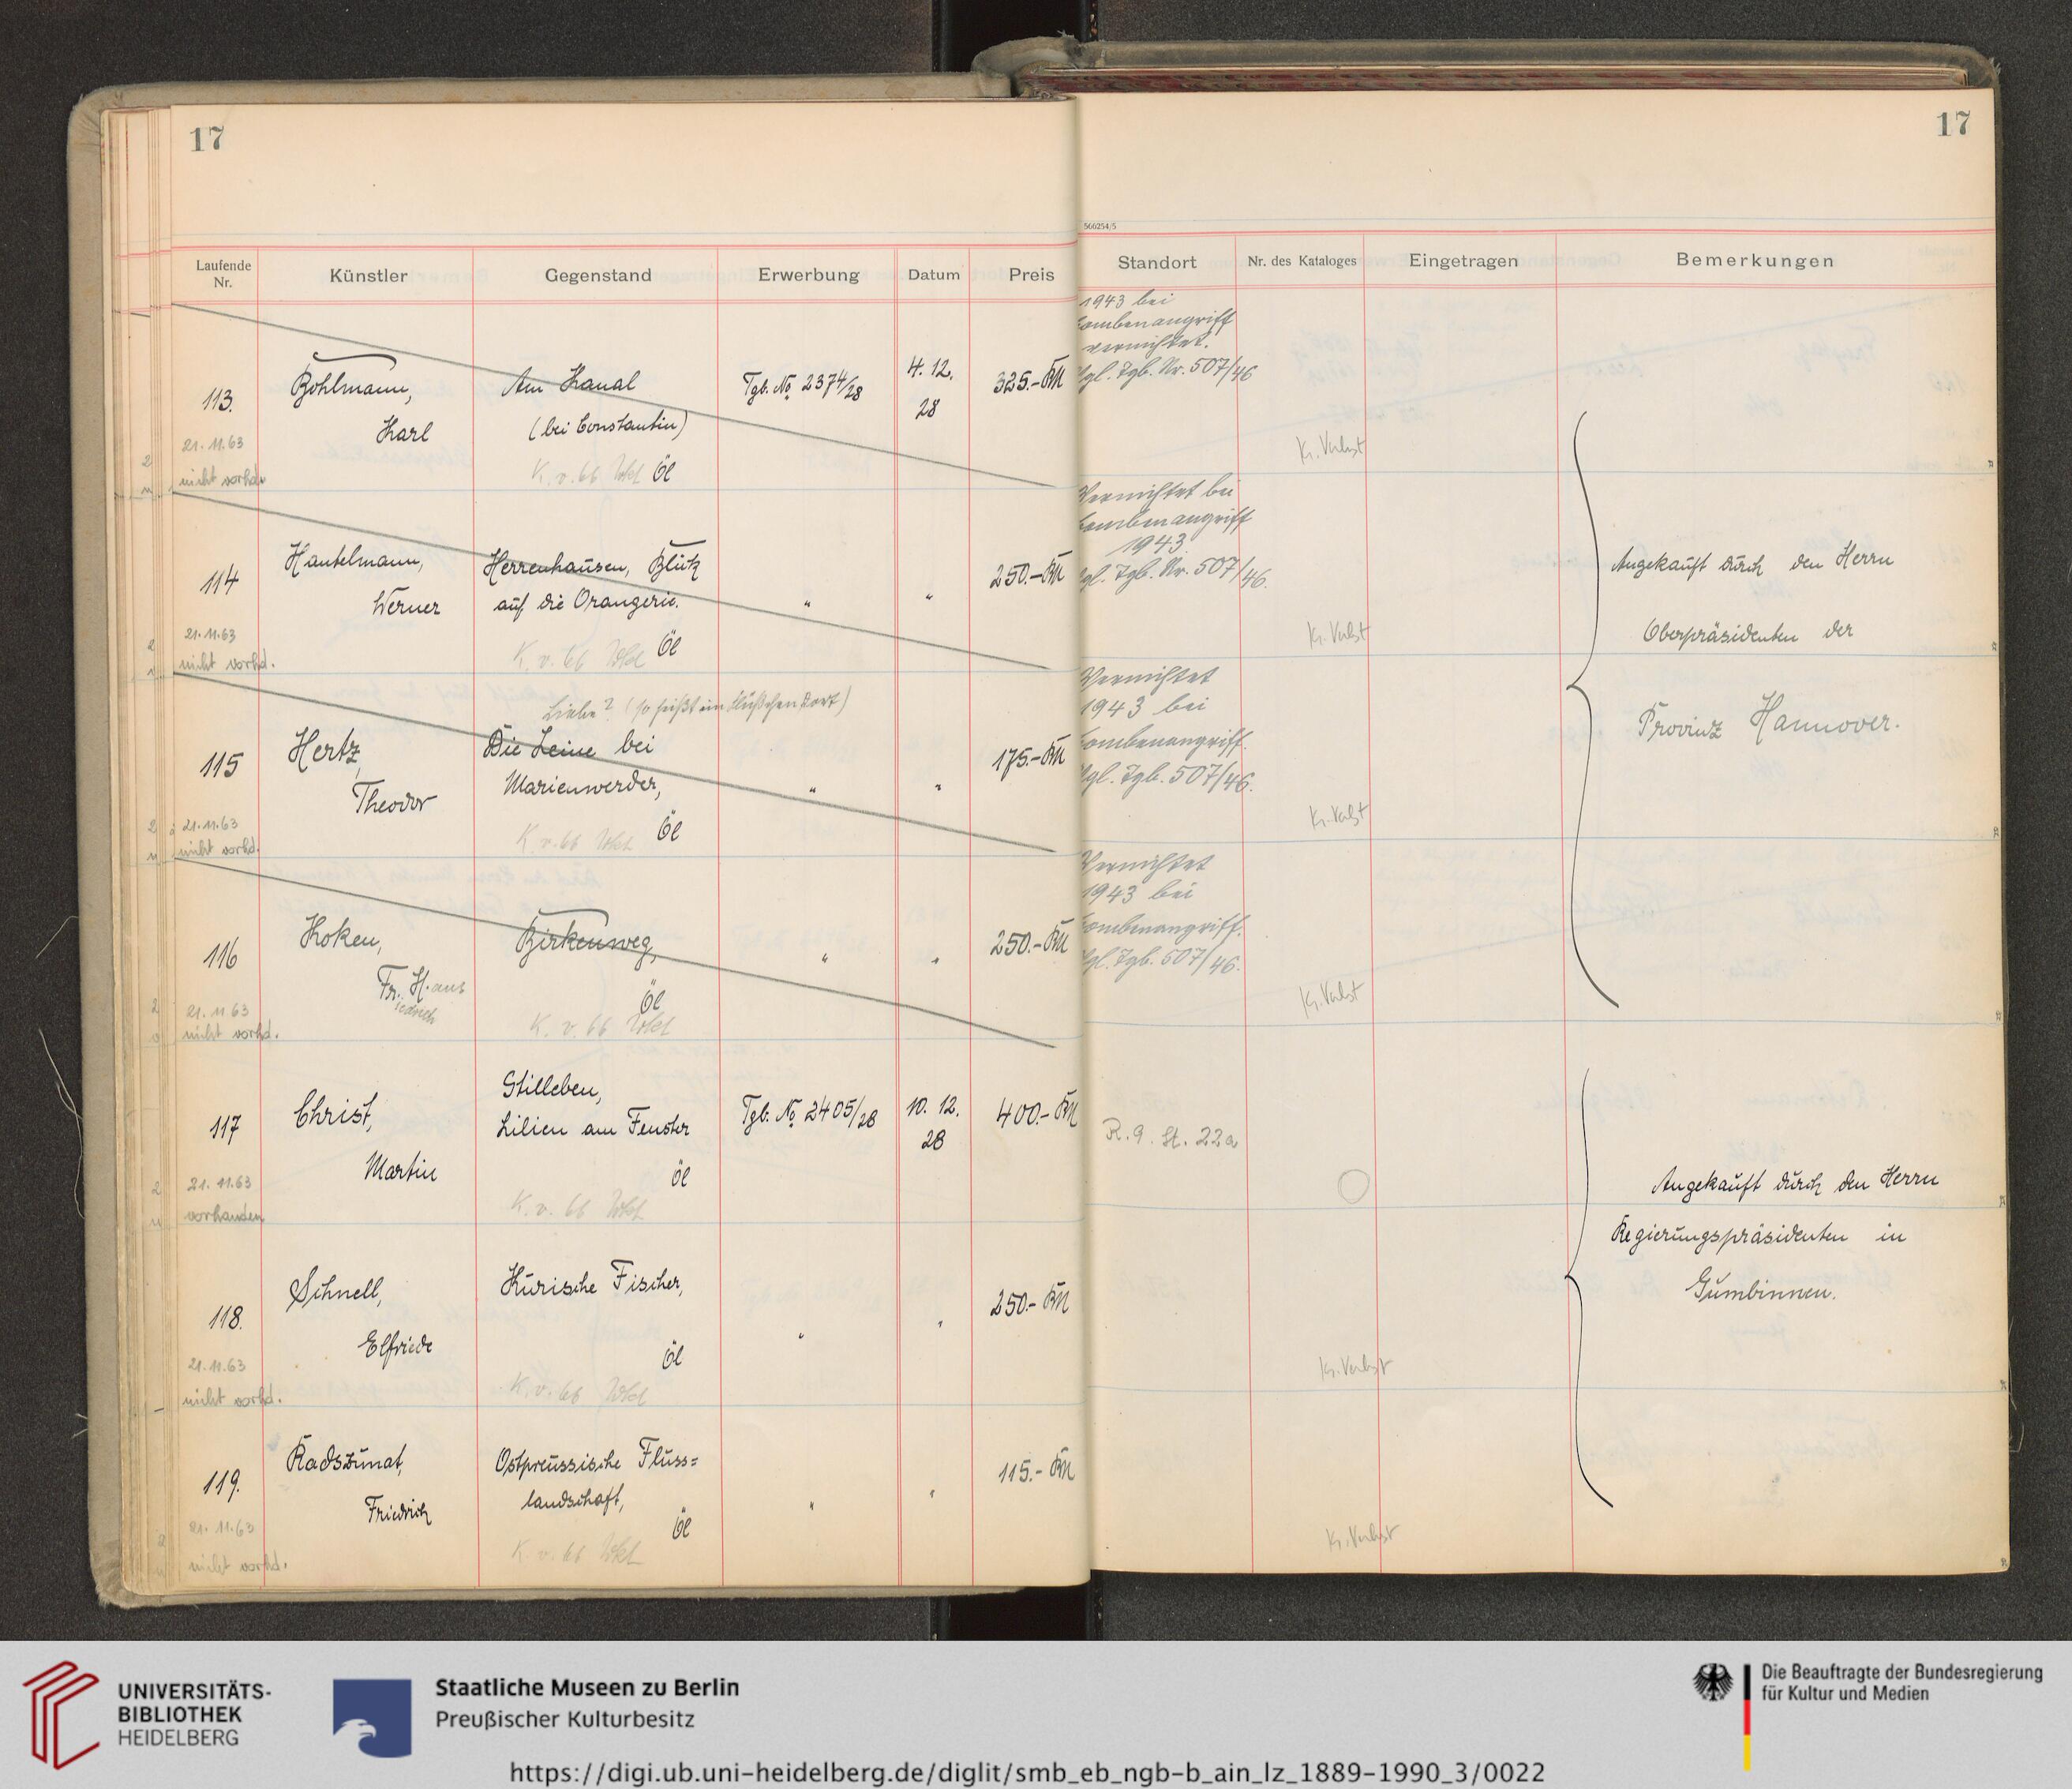 17
17
566254/5
Laufende Nr.
Künstler
Gegenstand
Erwerbung
Datum
Preis
Standort
Nr. des Kataloges
Eingetragen
Bemerkungen
113.
21.11.63
nicht vorhd.
Bohlmann,
Karl
Am Kanal
(bei Constantin)
Öl
K. v. 66
Tgb. No 2374/28
4. 12.
28
325.- RM
1943 bei
ombenangriff
vernichtet.
gl. Tgb. Nr. 507/46
K. Verlust
114
21.11.63
nicht vorhd.
Hantelmann,
Werner
Herrenhausen, Blick
auf die Orangerie.
Öl
K. v. 66
"
"
250.- RM
Vernichtet bei
ombenangriff
1943
gl. Tgb. Nr. 507/46.
K. Verlust
115
21.11.63
nicht vorhd.
Hertz,
Theodor
Liebe? (so heißt ein Flüßchen dort)
Die Leine bei
Marienwerder,
Öl
K. v. 66
"
"
175.- RM
Vernichtet
1943 bei
ombenangriff.
gl. Tgb. 507/46.
K. Verlust
116
21.11.63
nicht vorhd.
Koken,
Fr. H.ans
iedrich
Birkenweg,
Öl
K. v. 66
"
"
250.- RM
Vernichtet
1943 bei
ombenangriff.
gl. Tgb. 507/46.
K. Verlust
Angekauft durch den Herrn
Oberpräsidenten der
Provinz Hannover.
117
21.11.63
vorhanden
Christ,
Martin
Stilleben,
Lilien am Fenster
Öl
K. v. 66
Tgb. No 2405/28
10. 12.
28
400.- RM
R. 9. St. 22a
118.
21.11.63
nicht vorhd.
Schnell,
Elfriede
Kurische Fischer,
Öl
K. v. 66
"
"
250.- RM
K. Verlust
119.
21.11.63
nicht vorhd.
Radszunat,
Friedrich
Ostpreussische Fluss=
landschaft,
Öl
K. v. 66
"
"
115.- RM
K. Verlust
Angekauft durch den Herrn
Regierungspräsidenten in
Gumbinnen.
UNIVERSITÄTS-
BIBLIOTHEK
HEIDELBERG
Staatliche Museen zu Berlin
Preußischer Kulturbesitz
Die Beauftragte der Bundesregierung
für Kultur und Medien
https://digi.ub.uni-heidelberg.de/diglit/smb_eb_ngb-b_ain_lz_1889-1990_3/0022